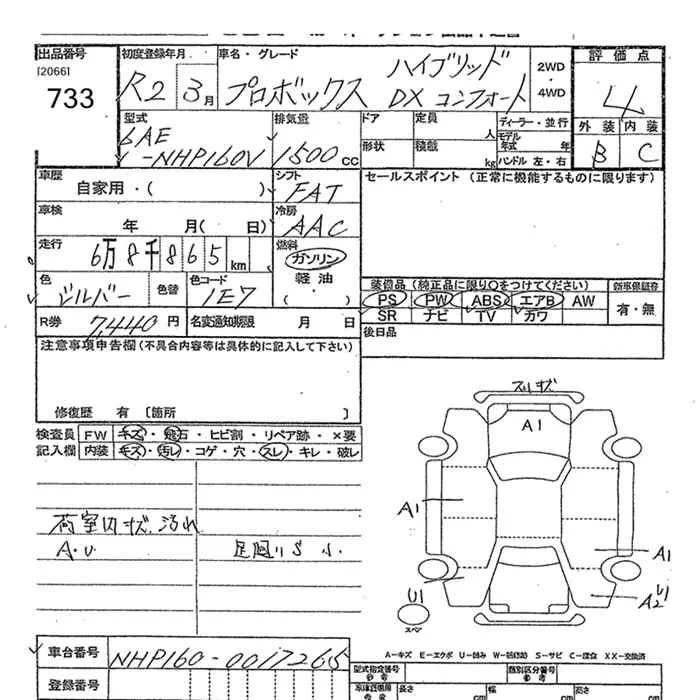 出品番号
[2066]
733
初度登録年月
R2 3月
車名・グレード
プロボックス ハイブリッド
DX コンフォート
2WD
4WD
評価点
4
外装 内装
B C
型式
6AE
-NHP160V
排気量
1500 CC
ドア
定員
人
形状
積載
kg
ディーラー・並行
モデル年式 年
ハンドル 左・右
車歴
自家用・( )
シフト
FAT
セールスポイント (正常に機能するものに限ります)
車検
年 月( 日)
冷房
AAC
走行
6万8千865 km
燃料
ガソリン
軽油
( )
色
シルバー
色替
色コード
1E7
装備品(純正品に限り○をつけてください)
PS PW ABS エアB AW
SR ナビ TV カワ
新車保証書
有・無
R券
7,440円
名変通知期限 月 日
後日品
注意事項申告欄(不具合内容等は具体的に記入して下さい)
修復歴 有 [箇所 ]
検査員 FW キズ・飛石・ヒビ割・リペア跡・×要
記入欄 内装 キズ・汚レ・コゲ・穴・スレ・キレ・破レ
荷室内キズ、汚れ
A・U
足回りS 小.
スリキズ
A1
A1
A1
U1
A2
U1
スペア
A−キズ E−エクボ U−凹み S−サビ C−腐食 XX−交換済
車台番号
NHP160-0017265
登録番号
型式指定番号
参考
類別区分番号
参考
長さ
cm
幅
cm
高さ
cm